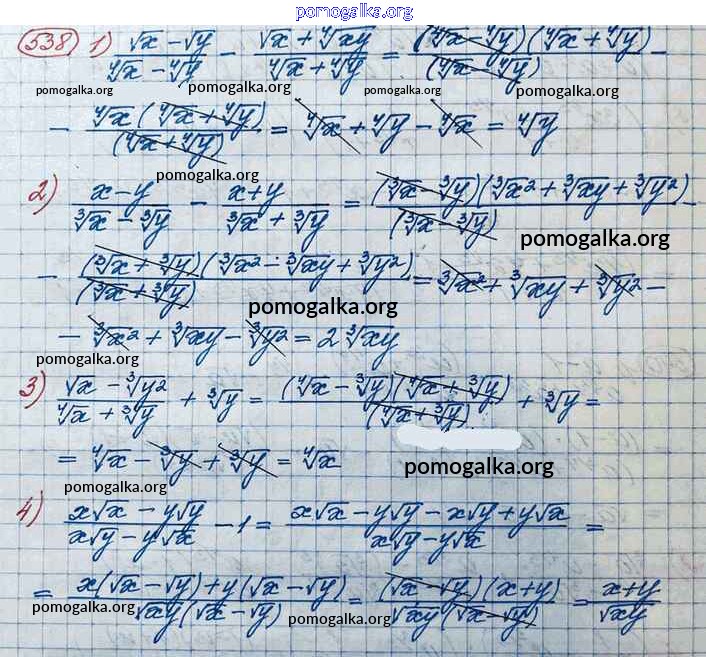 pomogalka.org
538 1) (√x − √y)/(⁴√x − ⁴√y) − (√x + ⁴√xy)/(⁴√x + ⁴√y) = (⁴√x − ⁴√y)(⁴√x + ⁴√y)/(⁴√x − ⁴√y) −
pomogalka.org pomogalka.org pomogalka.org pomogalka.org
− ⁴√x(⁴√x + ⁴√y)/(⁴√x + ⁴√y) = ⁴√x + ⁴√y − ⁴√x = ⁴√y
pomogalka.org
2) (x − y)/(³√x − ³√y) − (x + y)/(³√x + ³√y) = (³√x − ³√y)(³√x² + ³√xy + ³√y²)/(³√x − ³√y) −
pomogalka.org
− (³√x + ³√y)(³√x² − ³√xy + ³√y²)/(³√x + ³√y) = ³√x² + ³√xy + ³√y² −
pomogalka.org
− ³√x² + ³√xy − ³√y² = 2 ³√xy
pomogalka.org
3) (√x − ³√y²)/(⁴√x + ³√y) + ³√y = (⁴√x − ³√y)(⁴√x + ³√y)/(⁴√x + ³√y) + ³√y =
= ⁴√x − ³√y + ³√y = ⁴√x
pomogalka.org
pomogalka.org
4) (x√x − y√y)/(x√y − y√x) − 1 = (x√x − y√y − x√y + y√x)/(x√y − y√x) =
= (x(√x − √y) + y(√x − √y))/(√xy(√x − √y)) = (√x − √y)(x + y)/(√xy(√x − √y)) = (x + y)/√xy
pomogalka.org pomogalka.org